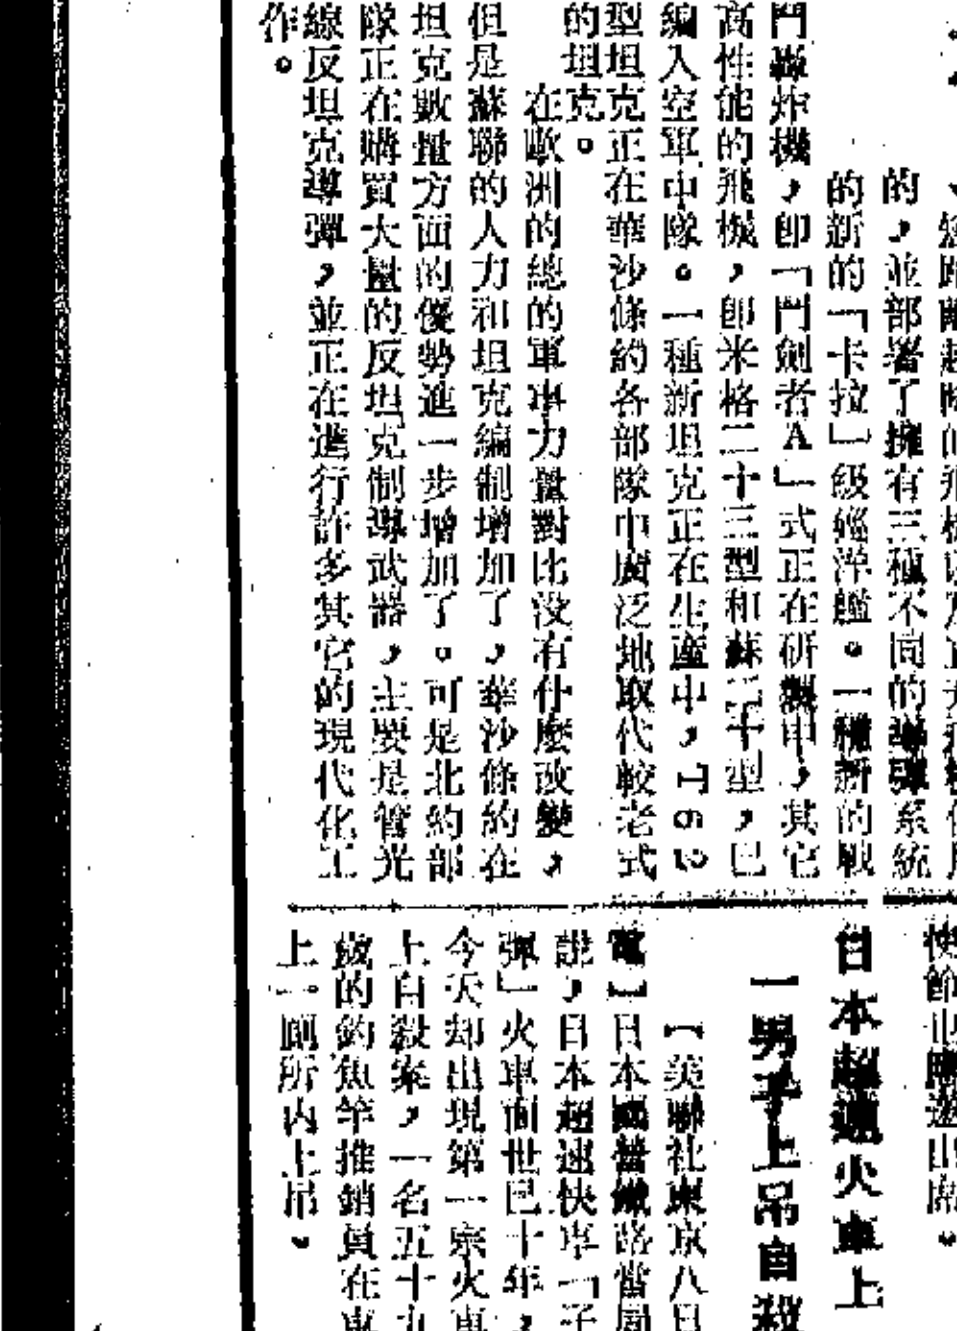 的，並部署了擁有三種不同的導彈系統
的新的「卡拉」級經洋艦。一種新的戰
鬥轟炸機，卽「鬥劍者A」式正在研製中，其它
高性能的飛機，卽米格二十三型和蘇二十型，已
編入空軍中隊。一種新坦克正在生產中，
型坦克正在華沙條約各部隊中廣泛地取代較老式
的坦克。
在歐洲的總的軍事力量對比没有什麼改變，
但是蘇聯的人力和坦克編制增加了，華沙條約在
坦克數量方面的優勢進一步增加了。可是北約部
隊正在購買大量的反坦克制導武器，主要是管光
線反坦克導彈，並正在進行許多其它的現代化工
作。
日本超速火車上
一男子上吊自殺
【英聯社東京八日
電】日本國營鐵路當局
說，日本超速快車「子
彈」火車面世已十年，
今天却出現第一宗火車
上自殺案，一名五十九
歲的釣魚竿推銷員在車
上一厠所内上吊。